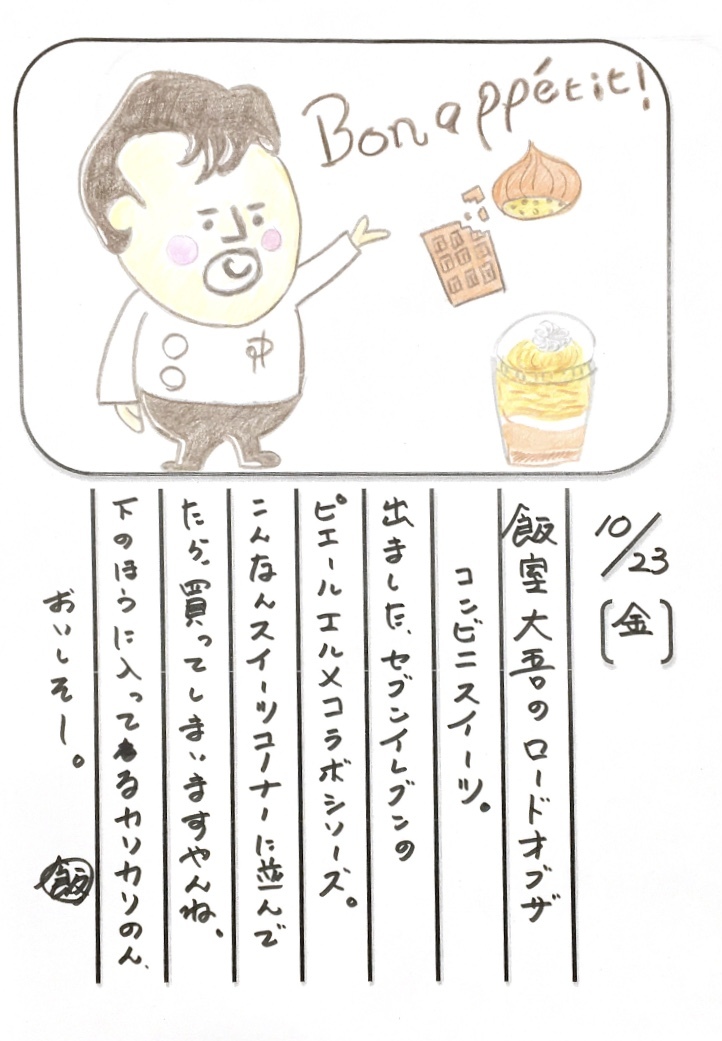 Bon appétit!
10/23
[金]
飯室大吾のロードオブザ
コンビニスイーツ。
出ました、セブンイレブンの
ピエールエルメコラボシリーズ。
こんなんスイーツコーナーに並んで
たら、買ってしまいますやんね。
下のほうに入ってるカリカリのん、
おいしそー。
飯